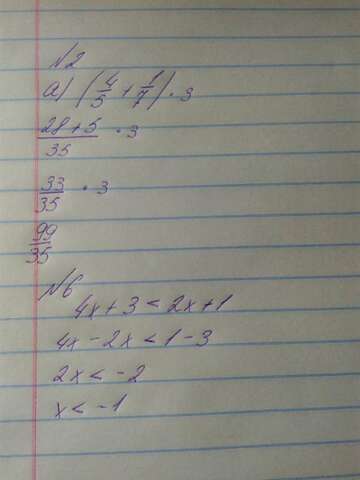 №2
а) (4/5 + 1/7) · 3
28+5/35 · 3
33/35 · 3
99/35
№6
4x + 3 < 2x + 1
4x - 2x < 1 - 3
2x < -2
x < -1